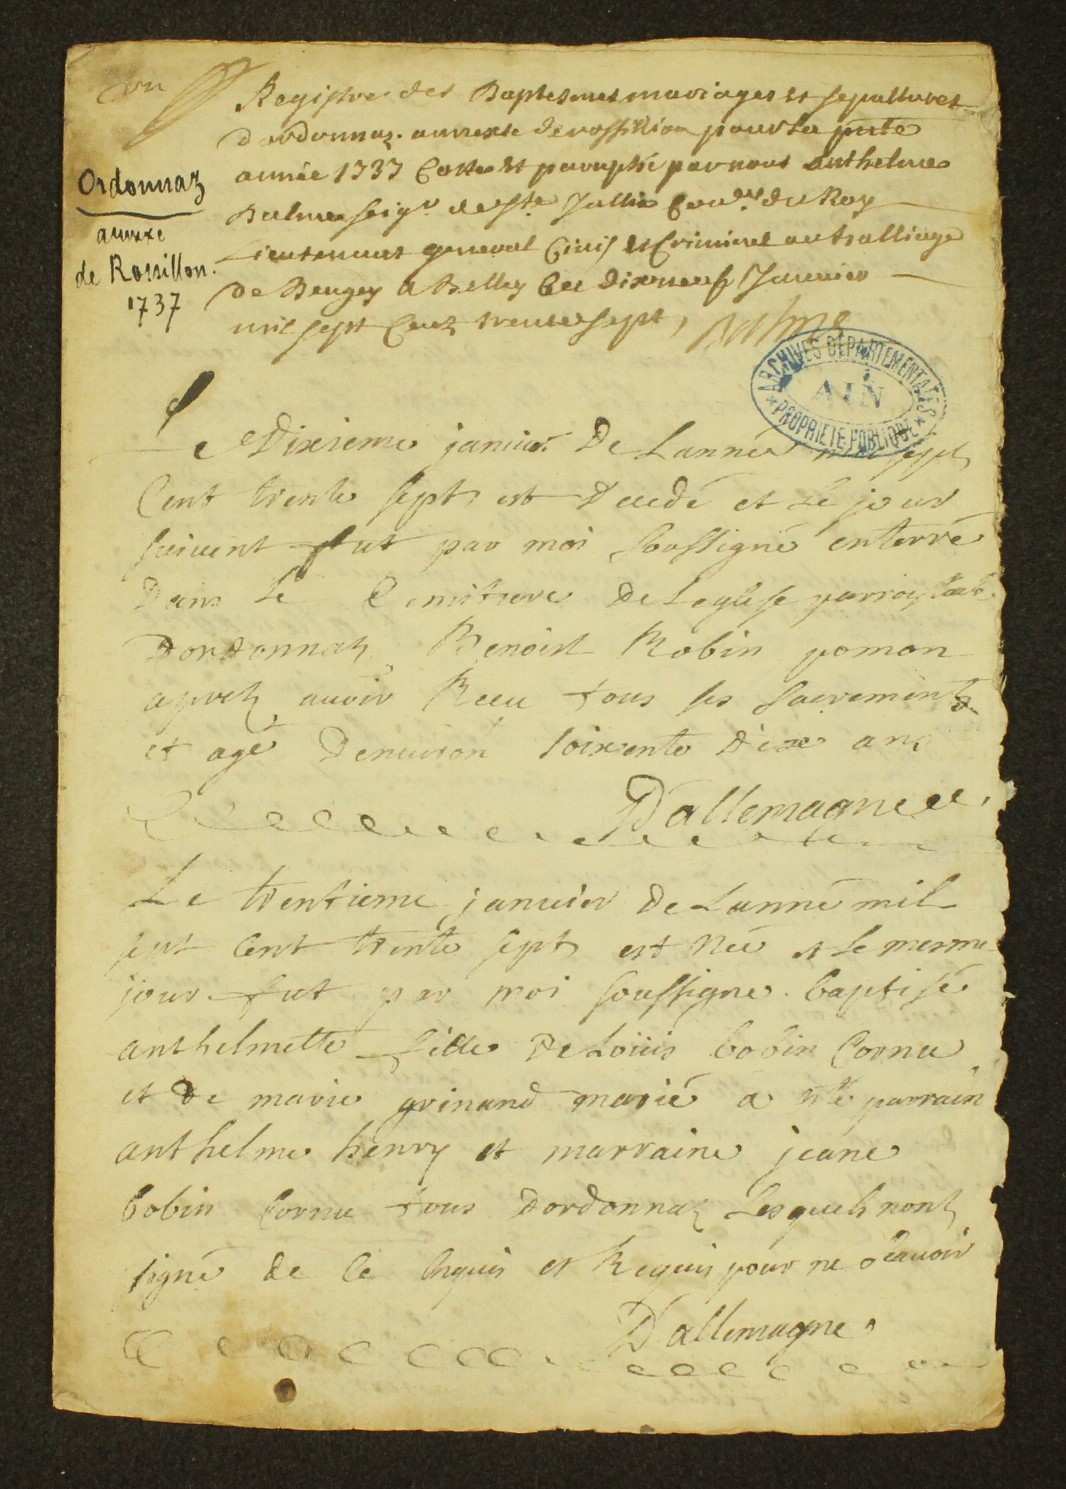 Registre des Baptesmes mariages et sepultures
Dordonnaz annexe de rossillion pour la pnte
année 1737 Cotte et paraphé par nous Anthelme
Balme seigr de Ste Jullie Conr du Roy
Lieutenant general Civil et Criminel au balliage
de Beugey a Belley Ce Dixneuf Janvier
mil sept Cent trente sept, Balme
Ordonnaz
annexe
de Rossillon.
1737
ARCHIVES DÉPARTEMENTALES
AIN
PROPRIÉTÉ PUBLIQUE
Le Dixieme janvier De Lannée mil sept
Cent trente sept est Decedé et Le jour
suivent fut par moi soussigné enterré
Dans Le Cemitiere De Leglise parroissialle
Dordonnaz Benoist Robin pomon
aprez avoir Receu tous ses sacrements
et agé Denviron soixente Dix ans
Dallemagne
Le trentieme janvier De Lanné mil
sept Cent trente sept est Neé et Le mesme
jour fut par moi soussigne baptisé
anthelmette fille De Loüis bobin Cornu
et De marie grinand marié a eté parrain
anthelme henry et marraine jeane
bobin Cornu tous Dordonnaz Lesquels nont
signé de Ce Enquis et Requis pour ne scavoir
Dallemagne